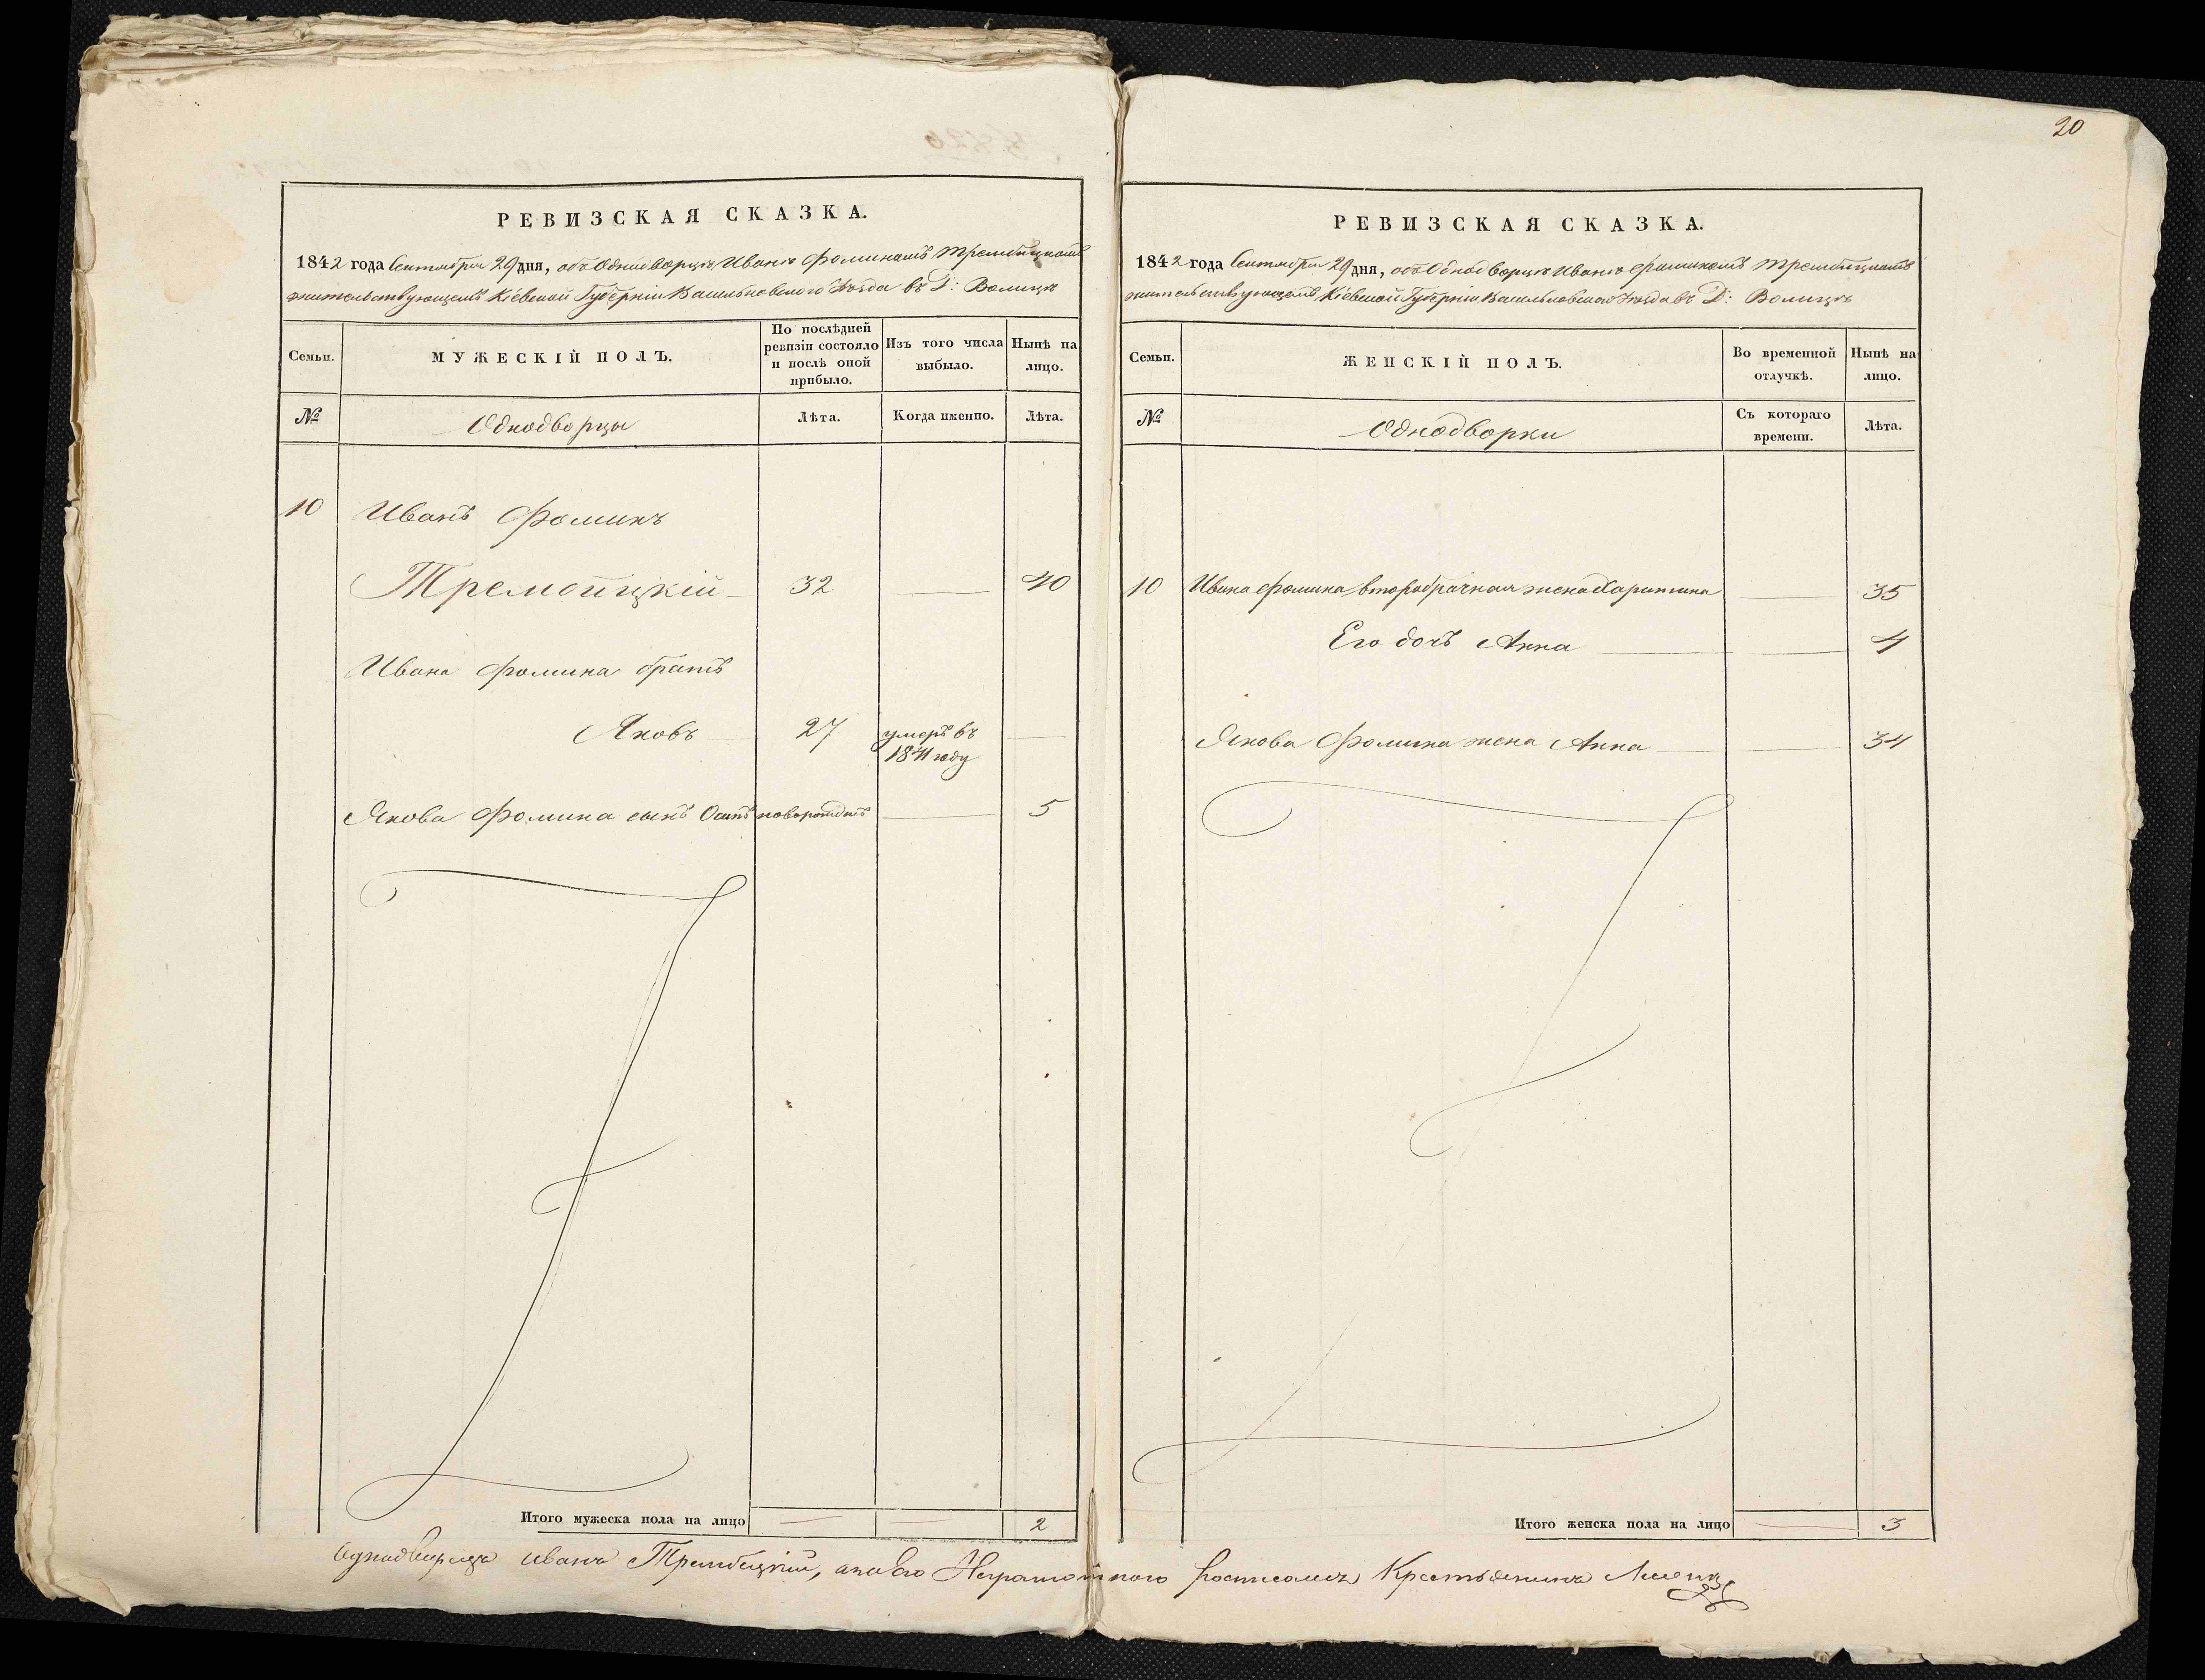 20
РЕВИЗСКАЯ СКАЗКА.
1842 года Сентября 29 дня, объ Однодворцѣ Иванѣ Фоминомъ Трембицкомъ
жительствующемъ Кіевской Губерніи Васильковского Уѣзда въ Д: Волицѣ
Семьи.
МУЖЕСКІЙ ПОЛЪ.
По послѣдней
ревизіи состояло
и послѣ оной
прибыло.
Изъ того числа
выбыло.
Нынѣ на
лицо.
№
Однодворцы
Лѣта.
Когда именно.
Лѣта.
10 Иванъ Фоминъ
Трембицкій 32 40
Ивана Фомина братъ
Яковъ 27 умеръ въ
1841 году
Якова Фомина сынъ Осипъ новорожденъ 5
Итого мужеска пола на лицо 2
РЕВИЗСКАЯ СКАЗКА.
1842 года Сентября 29 дня, объ Однодворцѣ Иванѣ Фоминомъ Трембицкомъ
жительствующемъ Кіевской Губерніи Васильковского Уѣзда въ Д: Волицѣ
Семьи.
ЖЕНСКІЙ ПОЛЪ.
Во временной
отлучкѣ.
Нынѣ на
лицо.
№
Однодворки
Съ котораго
времени.
Лѣта.
10 Ивана Фомина второбрачная жена Харитина 35
Его дочь Анна 4
Якова Фомина жена Анна 34
Итого женска пола на лицо 3
Иванъ Трембицкій, Неграмотного росписался Крестьянинъ